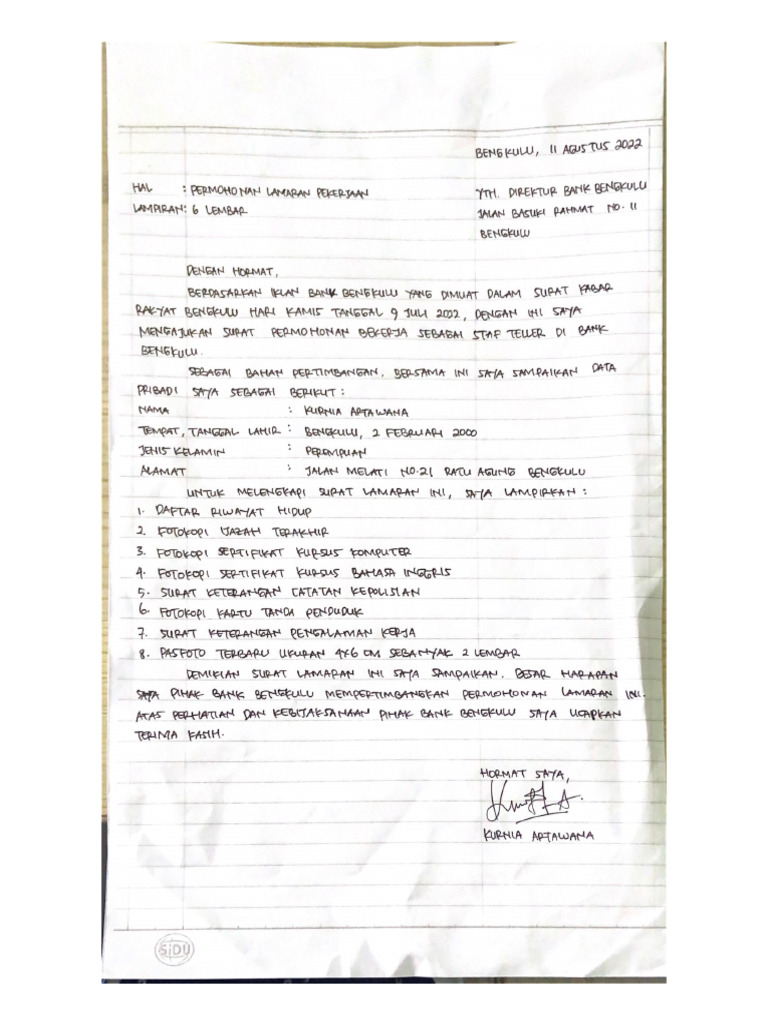 BENGKULU, 11 AGUSTUS 2022
HAL : PERMOHONAN LAMARAN PEKERJAAN
LAMPIRAN: 6 LEMBAR
YTH. DIREKTUR BANK BENGKULU
JALAN BASUKI RAHMAT NO. 11
BENGKULU
DENGAN HORMAT,
BERDASARKAN IKLAN BANK BENGKULU YANG DIMUAT DALAM SURAT KABAR
RAKYAT BENGKULU HARI KAMIS TANGGAL 9 JULI 2022, DENGAN INI SAYA
MENGAJUKAN SURAT PERMOHONAN BEKERJA SEBAGAI STAF TELLER DI BANK
BENGKULU.
SEBAGAI BAHAN PERTIMBANGAN, BERSAMA INI SAYA SAMPAIKAN DATA
PRIBADI SAYA SEBAGAI BERIKUT :
NAMA : KURNIA ARTAWANA
TEMPAT, TANGGAL LAHIR : BENGKULU, 2 FEBRUARI 2000
JENIS KELAMIN : PEREMPUAN
ALAMAT : JALAN MELATI NO.21 RATU AGUNG BENGKULU
UNTUK MELENGKAPI SURAT LAMARAN INI, SAYA LAMPIRKAN :
1. DAFTAR RIWAYAT HIDUP
2. FOTOKOPI IJAZAH TERAKHIR
3. FOTOKOPI SERTIFIKAT KURSUS KOMPUTER
4. FOTOKOPI SERTIFIKAT KURSUS BAHASA INGGRIS
5. SURAT KETERANGAN CATATAN KEPOLISIAN
6. FOTOKOPI KARTU TANDA PENDUDUK
7. SURAT KETERANGAN PENGALAMAN KERJA
8. PASFOTO TERBARU UKURAN 4X6 CM SEBANYAK 2 LEMBAR
DEMIKIAN SURAT LAMARAN INI SAYA SAMPAIKAN. BESAR HARAPAN
SAYA PIHAK BANK BENGKULU MEMPERTIMBANGKAN PERMOHONAN LAMARAN INI.
ATAS PERHATIAN DAN KEBIJAKSANAAN PIHAK BANK BENGKULU SAYA UCAPKAN
TERIMA KASIH.
HORMAT SAYA,
KURNIA ARTAWANA
SiDU